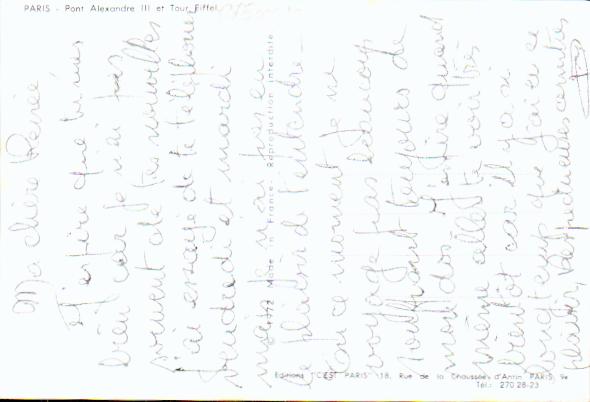 PARIS - Pont Alexandre III et Tour Eiffel
Ma chère Renée
J'espère que tu vas
bien car je n'ai pas
souvent de tes nouvelles
J'ai essayé de te téléphoner
vendredi et mardi
mais je n'ai pas eu
le plaisir de t'entendre -
En ce moment je ne
voyage pas beaucoup
souffrant toujours de
mon dos. J'espère quand
même aller te voir très
bientôt car il y a si
longtemps que j'ai eu ce
plaisir,
1972 Made in France. Reproduction interdite
Editions "CES" PARIS" 18, Rue de la Chaussée d'Antin PARIS 9e
Tél.: 270 28-23